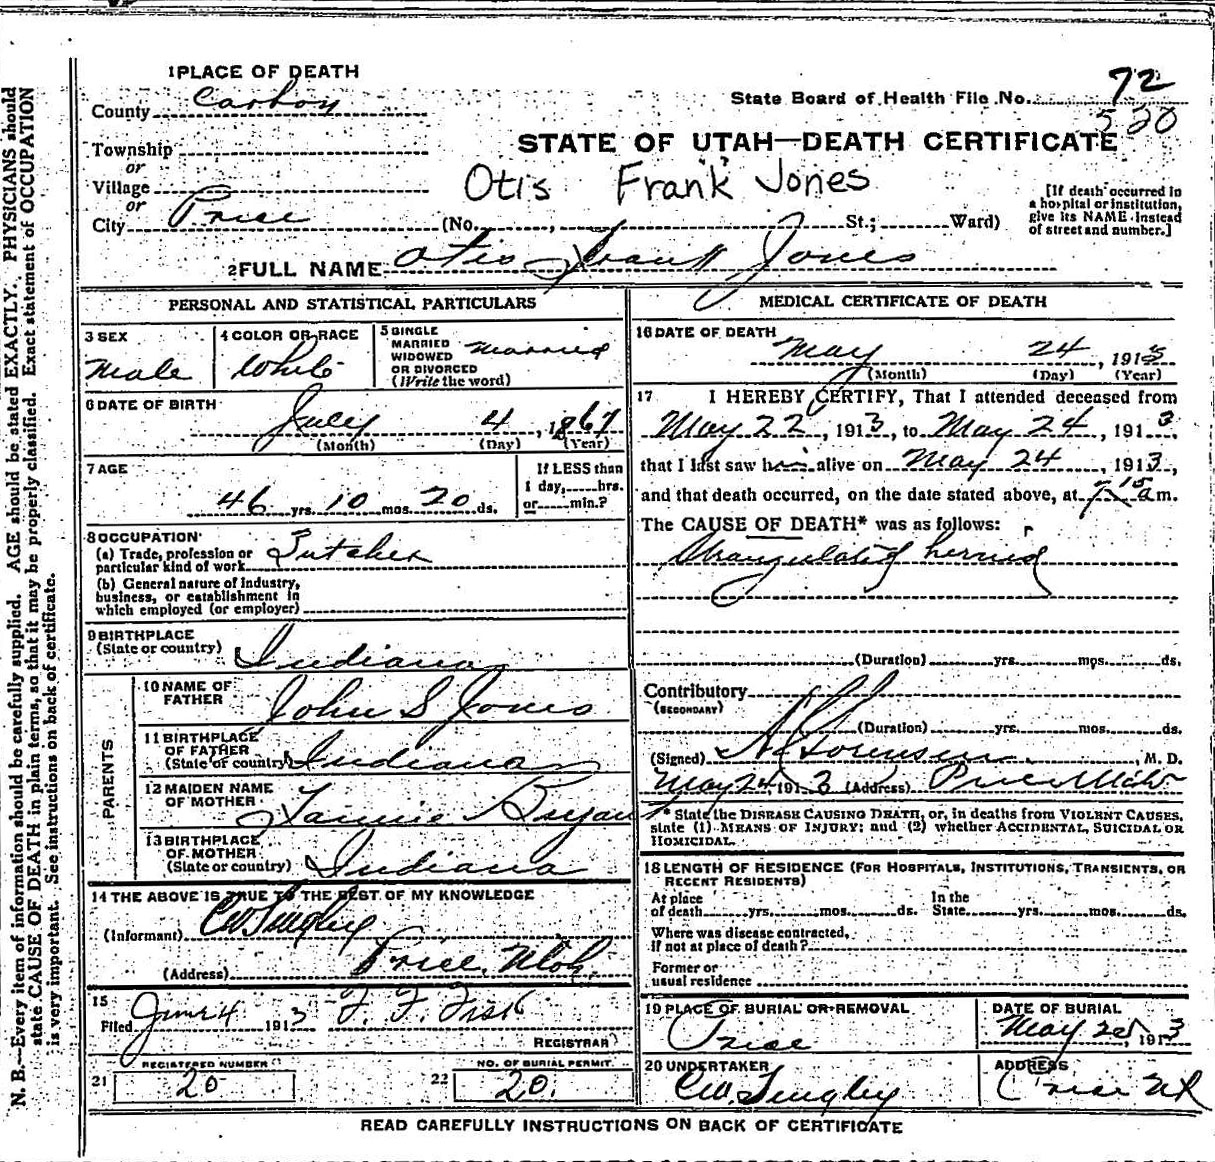 1 PLACE OF DEATH
County Carbon
State Board of Health File No. 72
520
Township
or
Village
or
City Price
STATE OF UTAH—DEATH CERTIFICATE
Otis "Frank" Jones
(No. , St.; Ward)
[If death occurred in
a hospital or institution,
give its NAME instead
of street and number.]
2 FULL NAME Otis Frank Jones
PERSONAL AND STATISTICAL PARTICULARS
3 SEX
Male
4 COLOR OR RACE
White
5 SINGLE
MARRIED
WIDOWED
OR DIVORCED
(Write the word)
Married
6 DATE OF BIRTH
July 4, 1867
(Month) (Day) (Year)
7 AGE
46 yrs. 10 mos. 20 ds.
If LESS than
1 day, hrs.
or min.?
8 OCCUPATION
(a) Trade, profession or
particular kind of work Butcher
(b) General nature of industry,
business, or establishment in
which employed (or employer)
9 BIRTHPLACE
(State or country) Indiana
PARENTS
10 NAME OF
FATHER John S Jones
11 BIRTHPLACE
OF FATHER
(State or country) Indiana
12 MAIDEN NAME
OF MOTHER Fannie Bryan
13 BIRTHPLACE
OF MOTHER
(State or country) Indiana
14 THE ABOVE IS TRUE TO THE BEST OF MY KNOWLEDGE
(Informant) CW Tingley
(Address) Price, Utah.
15
Filed June 4 1913 F. F. Fisk
REGISTRAR
REGISTERED NUMBER
21 20
NO. OF BURIAL PERMIT
22 20.
MEDICAL CERTIFICATE OF DEATH
16 DATE OF DEATH
May 24, 1913
(Month) (Day) (Year)
17 I HEREBY CERTIFY, That I attended deceased from
May 22, 1913, to May 24, 1913,
that I last saw him alive on May 24, 1913,
and that death occurred, on the date stated above, at 7 15 a m.
The CAUSE OF DEATH* was as follows:
Strangulated hernia
(Duration) yrs. mos. ds.
Contributory
(SECONDARY)
(Duration) yrs. mos. ds.
(Signed) Sorensen, M. D.
May 24 1913 (Address) Price Utah
* State the DISEASE CAUSING DEATH, or, in deaths from VIOLENT CAUSES,
state (1) MEANS OF INJURY; and (2) whether ACCIDENTAL, SUICIDAL OR
HOMICIDAL.
18 LENGTH OF RESIDENCE (FOR HOSPITALS, INSTITUTIONS, TRANSIENTS, OR
RECENT RESIDENTS)
At place
of death yrs. mos. ds.
In the
State yrs. mos. ds.
Where was disease contracted,
if not at place of death?
Former or
usual residence
19 PLACE OF BURIAL OR REMOVAL
Price
DATE OF BURIAL
May 25, 1913
20 UNDERTAKER
CW. Tingley
ADDRESS
Price Ut
READ CAREFULLY INSTRUCTIONS ON BACK OF CERTIFICATE
N. B.—Every item of information should be carefully supplied. AGE should be stated EXACTLY. PHYSICIANS should
state CAUSE OF DEATH in plain terms, so that it may be properly classified. Exact statement of OCCUPATION
is very important. See instructions on back of certificate.